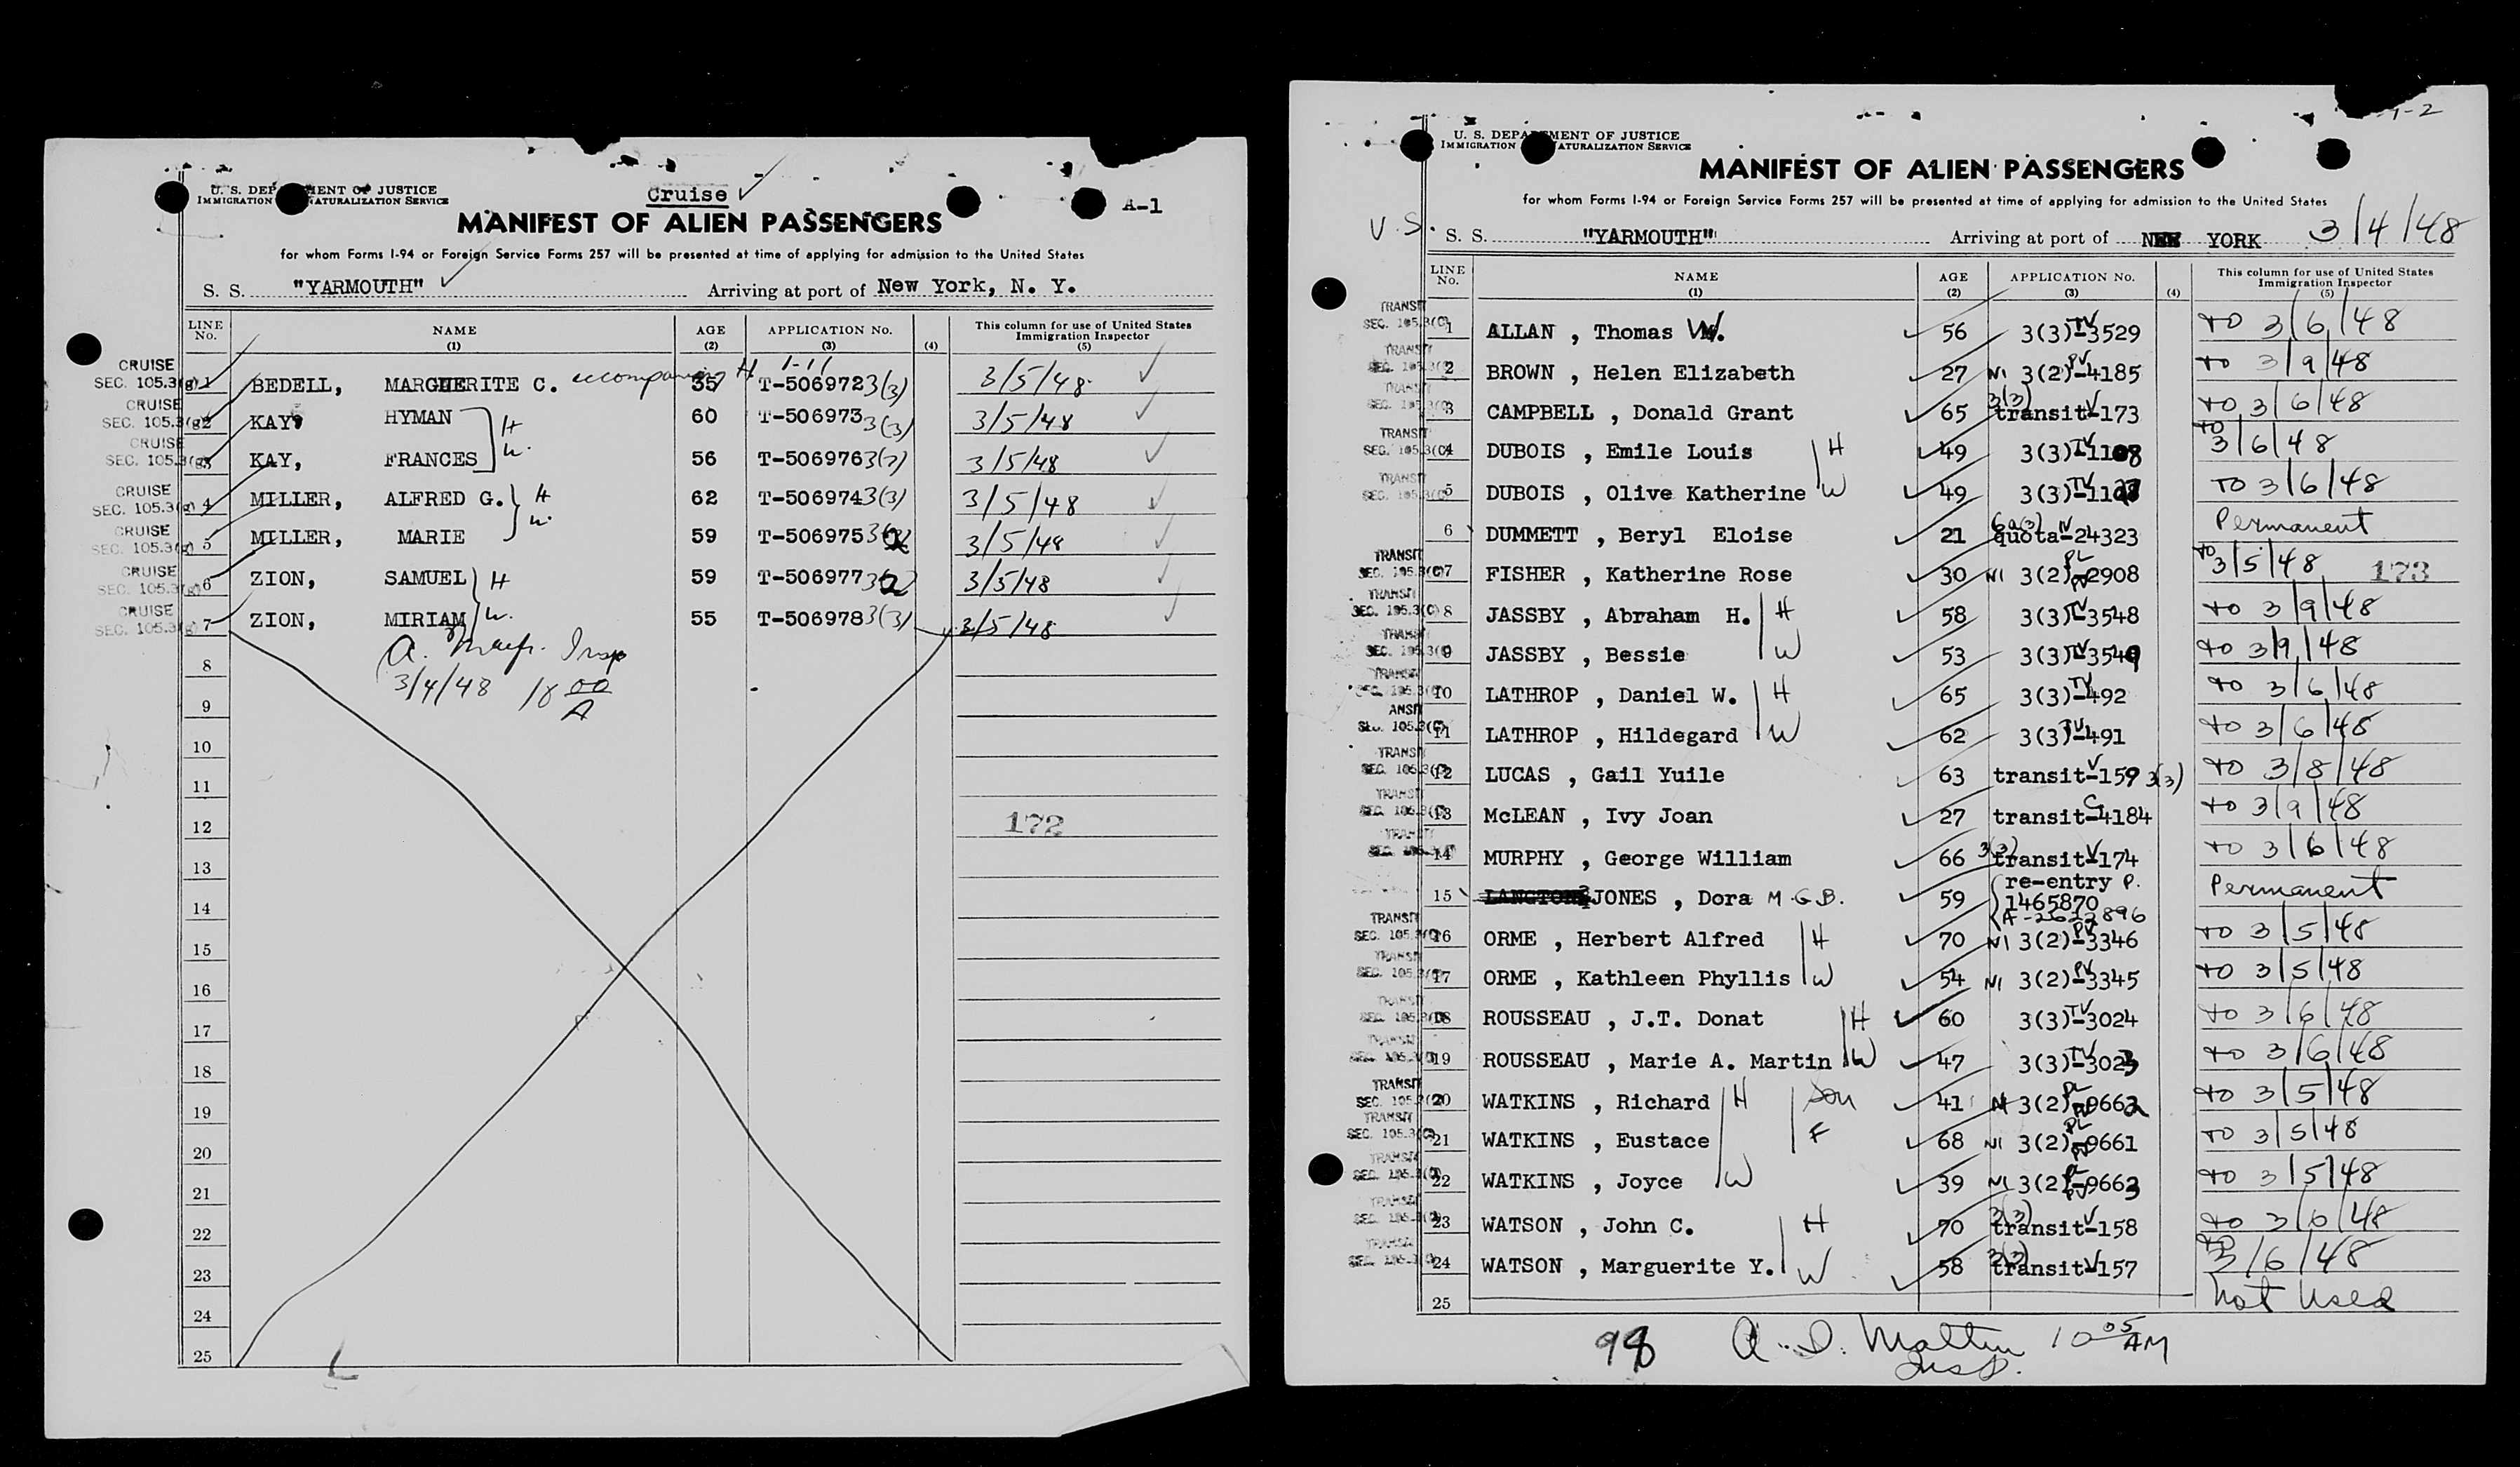 Cruise
A-1
U. S. DEP MENT OF JUSTICE
IMMIGRATION NATURALIZATION SERVICE
MANIFEST OF ALIEN PASSENGERS
for whom Forms I-94 or Foreign Service Forms 257 will be presented at time of applying for admission to the United States
S. S. "YARMOUTH" Arriving at port of New York, N. Y.
LINE No. NAME (1) AGE (2) APPLICATION No. (3) (4) This column for use of United States Immigration Inspector (5)
CRUISE SEC. 105.3(g) 1 BEDELL, MARGUERITE C. accompanying H 1-11 35 T-506972 3(3) 3/5/48
CRUISE SEC. 105.3(g) 2 KAY, HYMAN H 60 T-506973 3(3) 3/5/48
CRUISE SEC. 105.3(g) 3 KAY, FRANCES W. 56 T-506976 3(3) 3/5/48
CRUISE SEC. 105.3(g) 4 MILLER, ALFRED G. H 62 T-506974 3(3) 3/5/48
CRUISE SEC. 105.3(g) 5 MILLER, MARIE W. 59 T-506975 3/5/48
CRUISE SEC. 105.3(g) 6 ZION, SAMUEL H 59 T-506977 3/5/48
CRUISE SEC. 105.3(g) 7 ZION, MIRIAM W. 55 T-506978 3(3) 3/5/48
A. Insp
8
3/4/48 10 00 A
9
10
11
12 172
13
14
15
16
17
18
19
20
21
22
23
24
25
U. S. DEPA MENT OF JUSTICE
IMMIGRATION NATURALIZATION SERVICE
MANIFEST OF ALIEN PASSENGERS
for whom Forms I-94 or Foreign Service Forms 257 will be presented at time of applying for admission to the United States
U.S. S. S. "YARMOUTH" Arriving at port of NEW YORK 3/4/48
LINE No. NAME (1) AGE (2) APPLICATION No. (3) (4) This column for use of United States Immigration Inspector (5)
TRANSIT SEC. 105.3(C) 1 ALLAN , Thomas W. 56 3(3) TV-3529 to 3/6/48
TRANSIT SEC. 105.3(C) 2 BROWN , Helen Elizabeth 27 NI 3(2) PV-4185 to 3/9/48
TRANSIT SEC. 105.3(C) 3 CAMPBELL , Donald Grant 65 3(3) transit V-173 to 3/6/48
TRANSIT SEC. 105.3(C) 4 DUBOIS , Emile Louis H 49 3(3) TV-1108 to 3/6/48
TRANSIT SEC. 105.3(C) 5 DUBOIS , Olive Katherine W 49 3(3) TV-1107 to 3/6/48
6 DUMMETT , Beryl Eloise 21 6a(3) quota IV-24323 Permanent
TRANSIT SEC. 105.3(C) 7 FISHER , Katherine Rose 30 NI 3(2) PL PV-2908 to 3/5/48 173
TRANSIT SEC. 105.3(C) 8 JASSBY , Abraham H. H 58 3(3) TV-3548 to 3/9/48
TRANSIT SEC. 105.3(C) 9 JASSBY , Bessie W 53 3(3) TV-3549 to 3/9/48
TRANSIT SEC. 105.3(C) 10 LATHROP , Daniel W. H 65 3(3) TV-492 to 3/6/48
ANSIT SEC. 105.3(C) 11 LATHROP , Hildegard W 62 3(3) TV-491 to 3/6/48
TRANSIT SEC. 105.3(C) 12 LUCAS , Gail Yuile 63 transit V-159 3(3) to 3/8/48
TRANSIT SEC. 105.3(C) 13 McLEAN , Ivy Joan 27 transit C-4184 to 3/9/48
TRANSIT SEC. 105.3(C) 14 MURPHY , George William 66 3(3) transit V-174 to 3/6/48
15 LANGTON JONES , Dora M.G.B. 59 re-entry P. 1465870 A-2622896 Permanent
TRANSIT SEC. 105.3(C) 16 ORME , Herbert Alfred H 70 NI 3(2) PV-3346 to 3/5/48
TRANSIT SEC. 105.3(C) 17 ORME , Kathleen Phyllis W 54 NI 3(2) PV-3345 to 3/5/48
TRANSIT SEC. 105.3(C) 18 ROUSSEAU , J.T. Donat H 60 3(3) TV-3024 to 3/6/48
TRANSIT SEC. 105.3(C) 19 ROUSSEAU , Marie A. Martin W 47 3(3) TV-3023 to 3/6/48
TRANSIT SEC. 105.3(C) 20 WATKINS , Richard H Son 41 NI 3(2) PL PV-9662 to 3/5/48
TRANSIT SEC. 105.3(C) 21 WATKINS , Eustace F 68 NI 3(2) PL PV-9661 to 3/5/48
TRANSIT SEC. 105.3(C) 22 WATKINS , Joyce W 39 NI 3(2) PL PV-9663 to 3/5/48
TRANSIT SEC. 105.3(C) 23 WATSON , John C. H 70 3(3) transit V-158 to 3/6/48
TRANSIT SEC. 105.3(C) 24 WATSON , Marguerite Y. W 58 3(3) transit V-157 to 3/6/48
25 not used
98 A. D. Insp. 10 05 AM